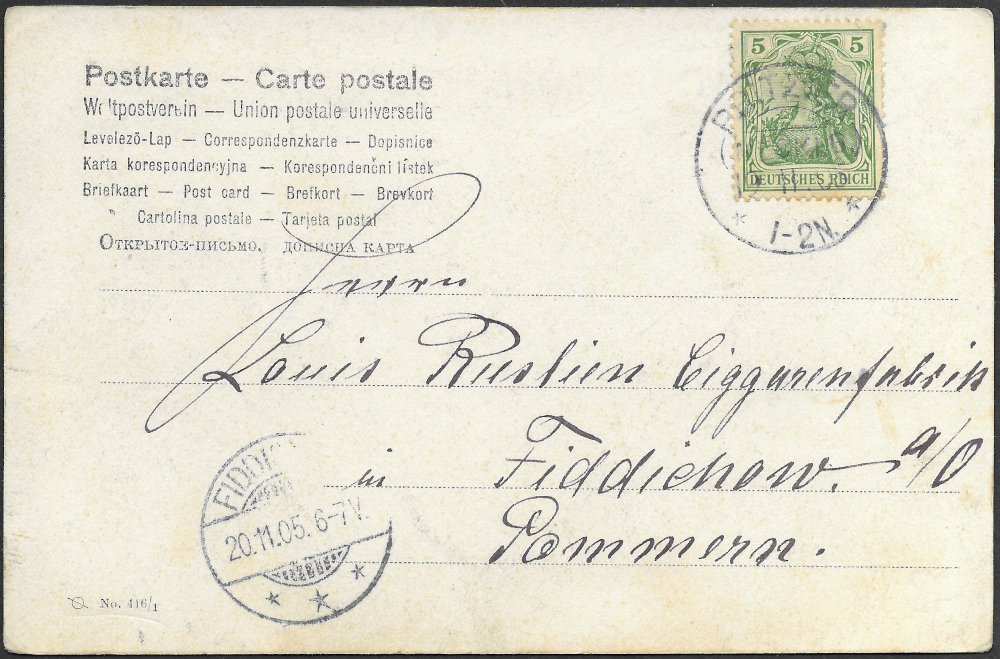 Postkarte — Carte postale
Weltpostverein — Union postale universelle
Levelező-Lap — Correspondenzkarte — Dopisnice
Karta korespondencyjna — Korespondenční lístek
Briefkaart — Post card — Brefkort — Brevkort
Cartolina postale — Tarjeta postal
Открытое-письмо. дописна карта
5 5
DEUTSCHES REICH
* 1-2N. *
Herrn
Louis Ruslien Ciggarenfabrik
in Fiddichow a/O
Pommern.
FIDDI
20.11.05. 6-7V.
No. 416/1